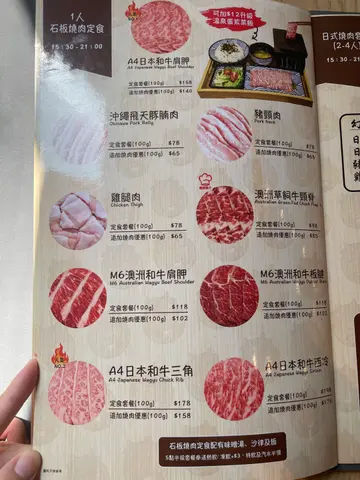 1人
石板燒肉定食
15:30-21:00
可加$12升級
溫泉蛋絞菜飯
A4日本和牛肩胛
A4 Japanese Wagyu Beef Shoulder
定食套餐(100g) $158
追加燒肉優惠(100g) $140
沖繩飛天豚腩肉
Okinawa Pork Belly
定食套餐(100g) $78
追加燒肉優惠(100g) $65
豬頸肉
Pork Neck
定食套餐(100g) $78
追加燒肉優惠(100g) $65
雞腿肉
Chicken Thigh
定食套餐(100g) $78
追加燒肉優惠(100g) $65
澳洲草飼牛頸脊
Australian Grass Fed Chuck Flap
定食套餐(100g) $78
追加燒肉優惠(100g) $65
M6澳洲和牛肩胛
M6 Australia Wagyu Beef Shoulder
定食套餐(100g) $118
追加燒肉優惠(100g) $102
M6澳洲和牛板腱
定食套餐(100g) $118
追加燒肉優惠(100g) $102
人氣
NO.2
A4日本和牛三角
A4 Japanese Wagyu Chuck Rib
定食套餐(100g) $178
追加燒肉優惠(100g) $158
A4日本和牛西冷
A4 Japanese Wagyu Sirloin
定食套餐(100g)
追加燒肉優惠(100g)
石板燒肉定食配有味噌湯、沙律及飯
日式燒肉套
(2-4人
15:30